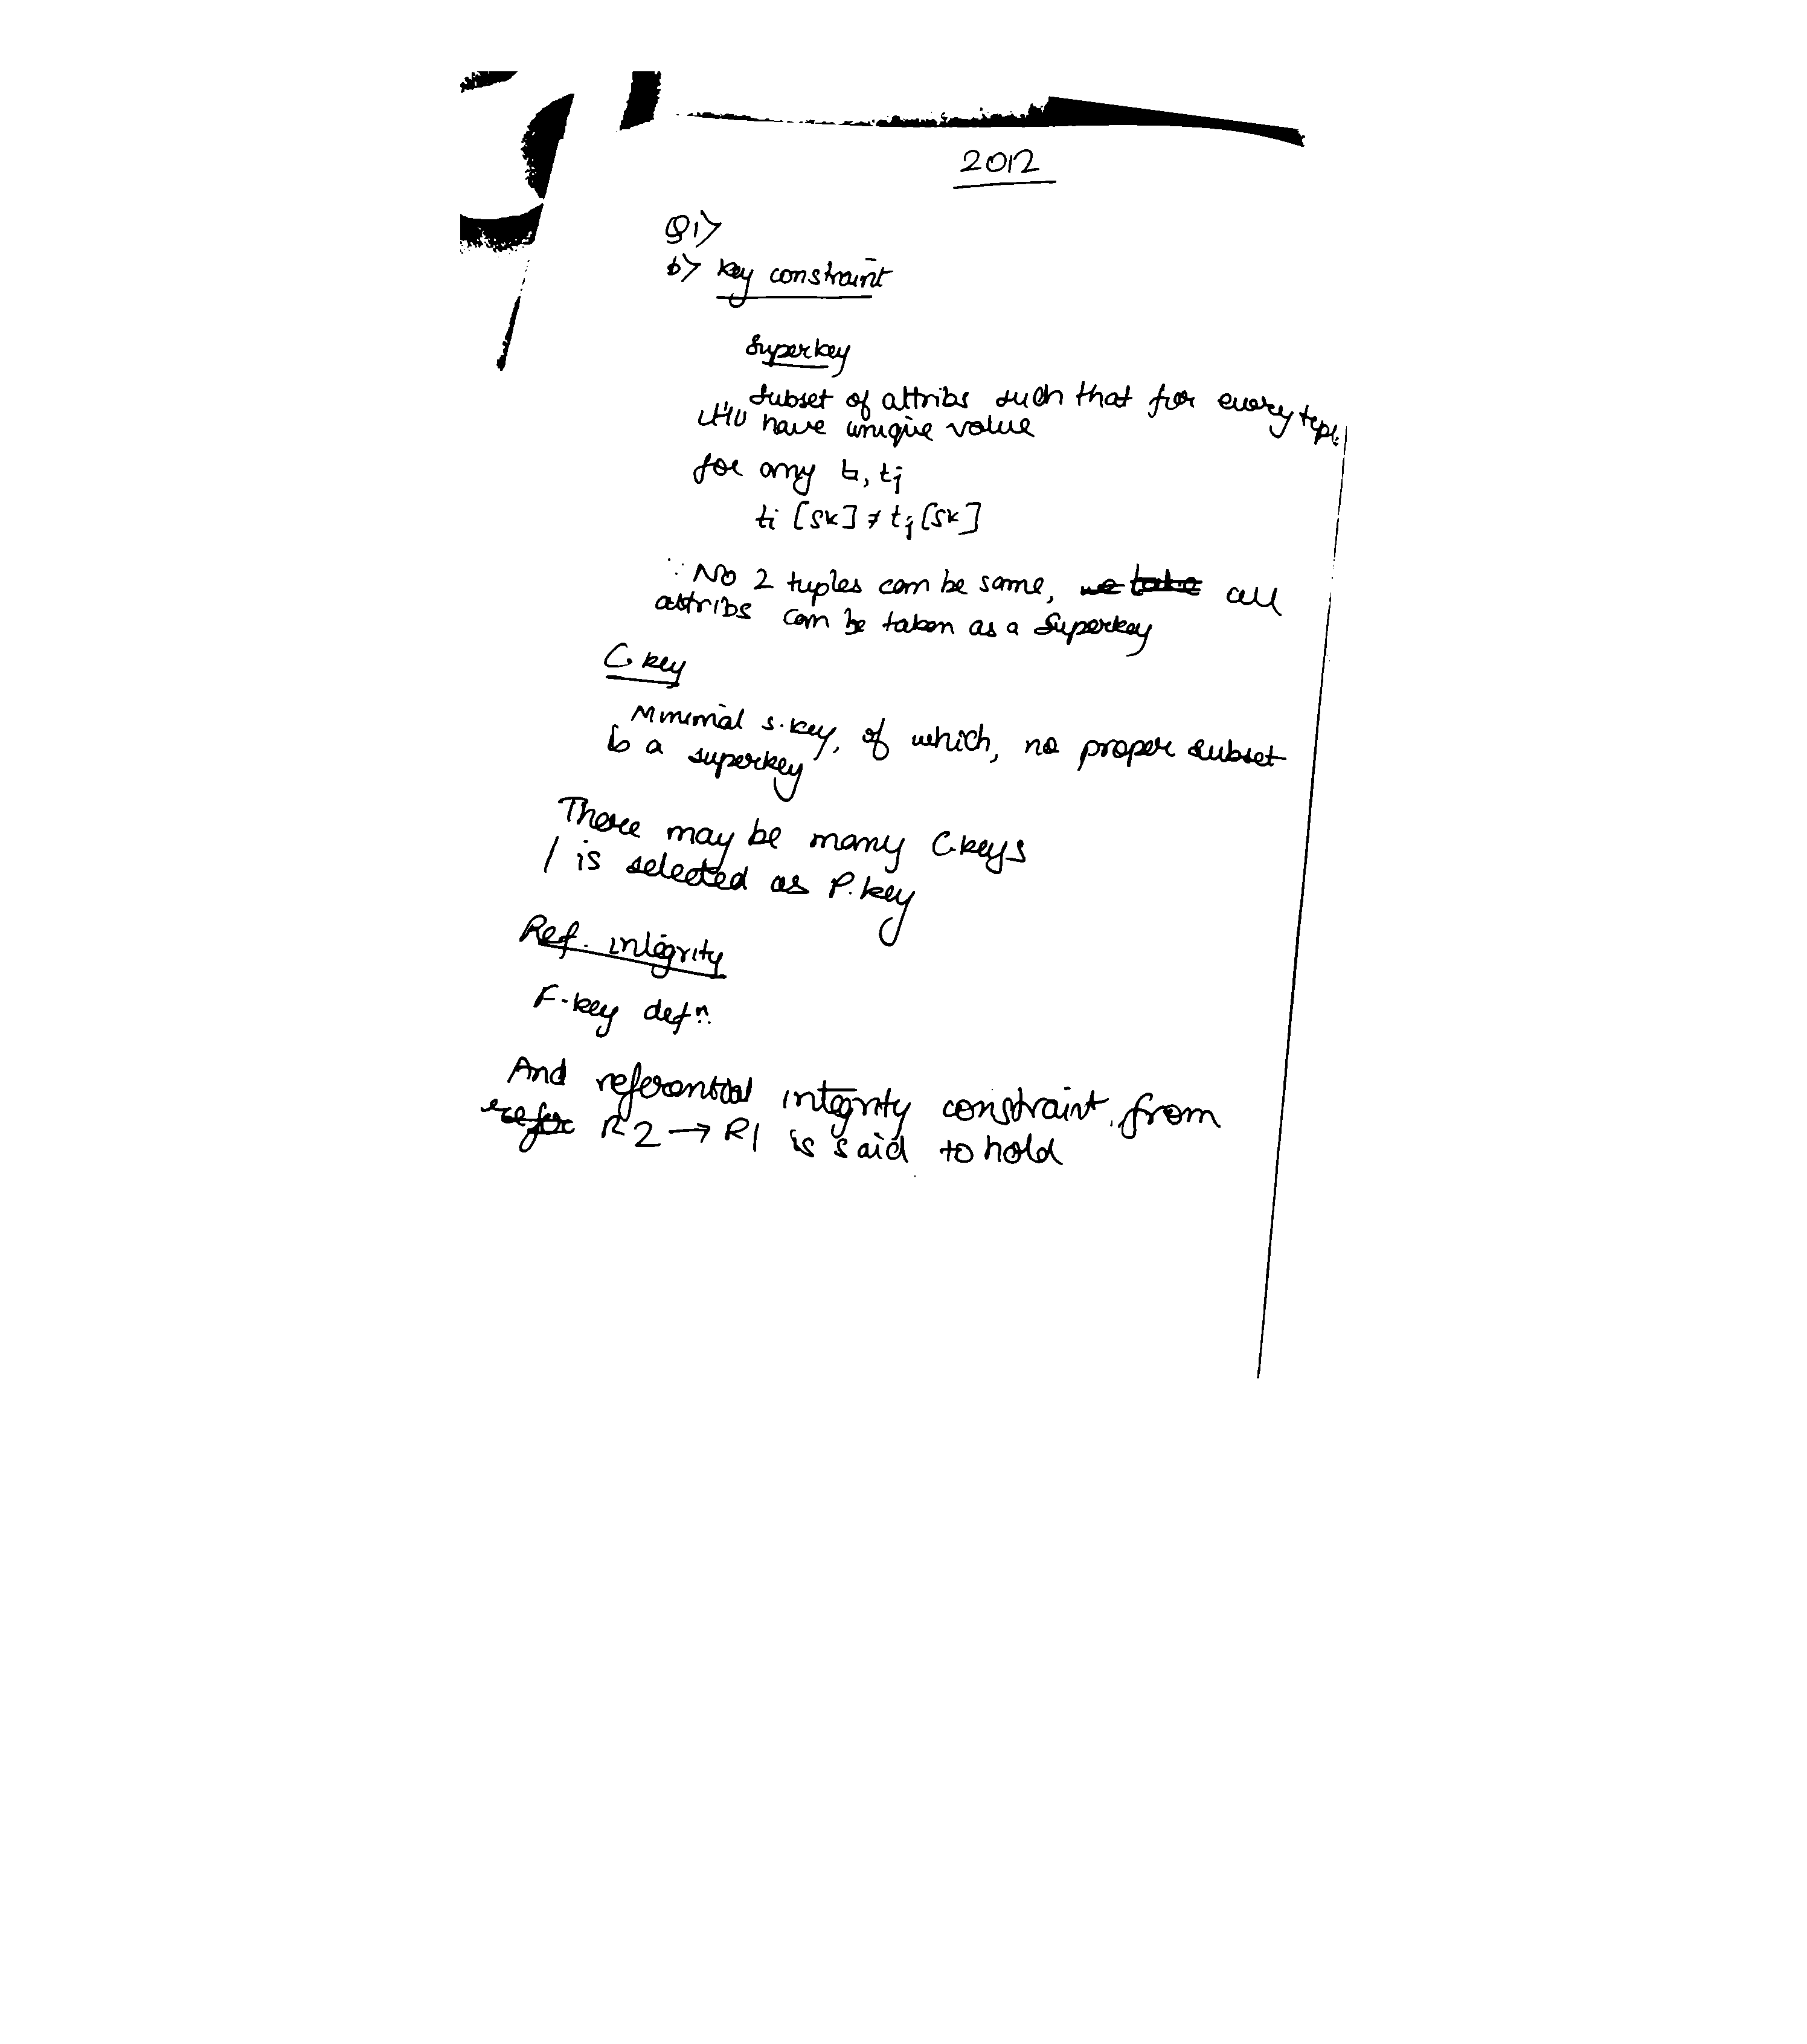 2012
Q1>
b> key constraint
Superkey
Subset of attribs such that for every tuple
it'll have unique value
for any ti, tj
ti [SK] ≠ tj [SK]
∵ No 2 tuples can be same, we take all
attribs can be taken as a Superkey
C. key
Minimal s.key, of which, no proper subset
is a superkey
There may be many C.keys
1 is selected as P.key
Ref. integrity
F-key defn.
And referential integrity constraint from
R2 → R1 is said to hold